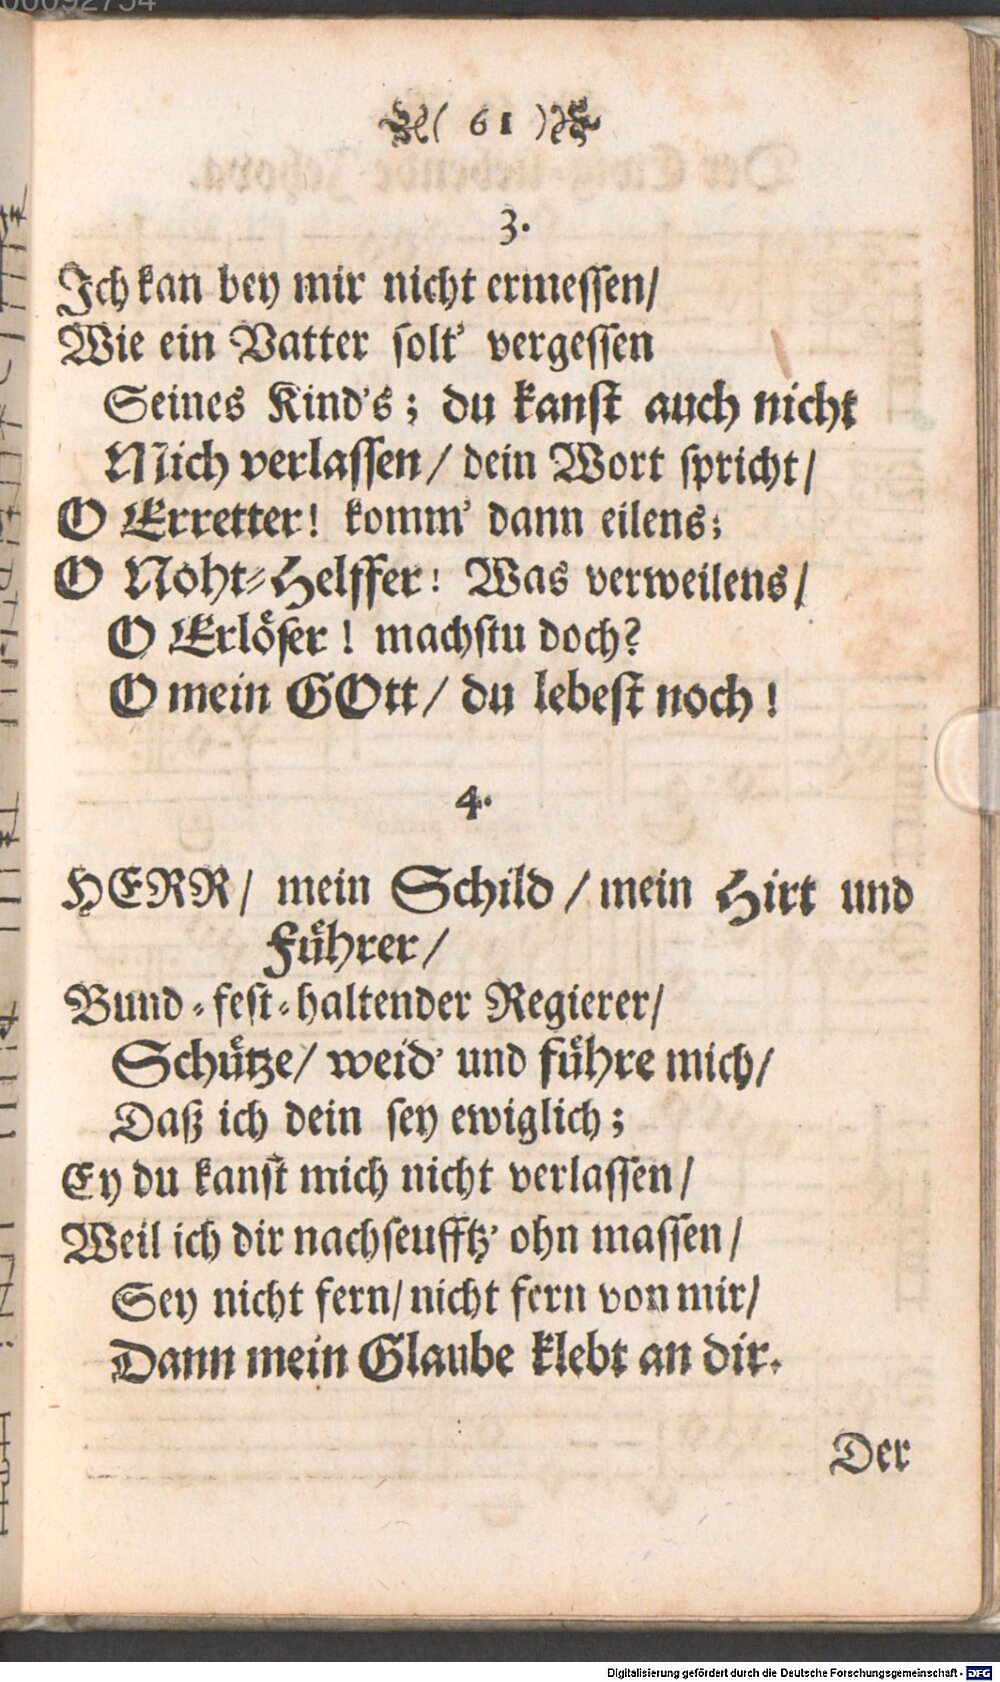 ( 61 )
3.
Ich kan bey mir nicht ermessen/
Wie ein Vatter solt' vergessen
Seines Kind's; du kanst auch nicht
Mich verlassen/ dein Wort spricht/
O Erretter! komm' dann eilens;
O Noht-Helffer! Was verweilens/
O Erlöser! machstu doch?
O mein GOtt/ du lebest noch!
4.
HERR/ mein Schild/ mein Hirt und
Führer/
Bund-fest-haltender Regierer/
Schütze/ weid' und führe mich/
Daß ich dein sey ewiglich;
Ey du kanst mich nicht verlassen/
Weil ich dir nachseufftz' ohn massen/
Sey nicht fern/ nicht fern von mir/
Dann mein Glaube klebt an dir.
Der
Digitalisierung gefördert durch die Deutsche Forschungsgemeinschaft - DFG